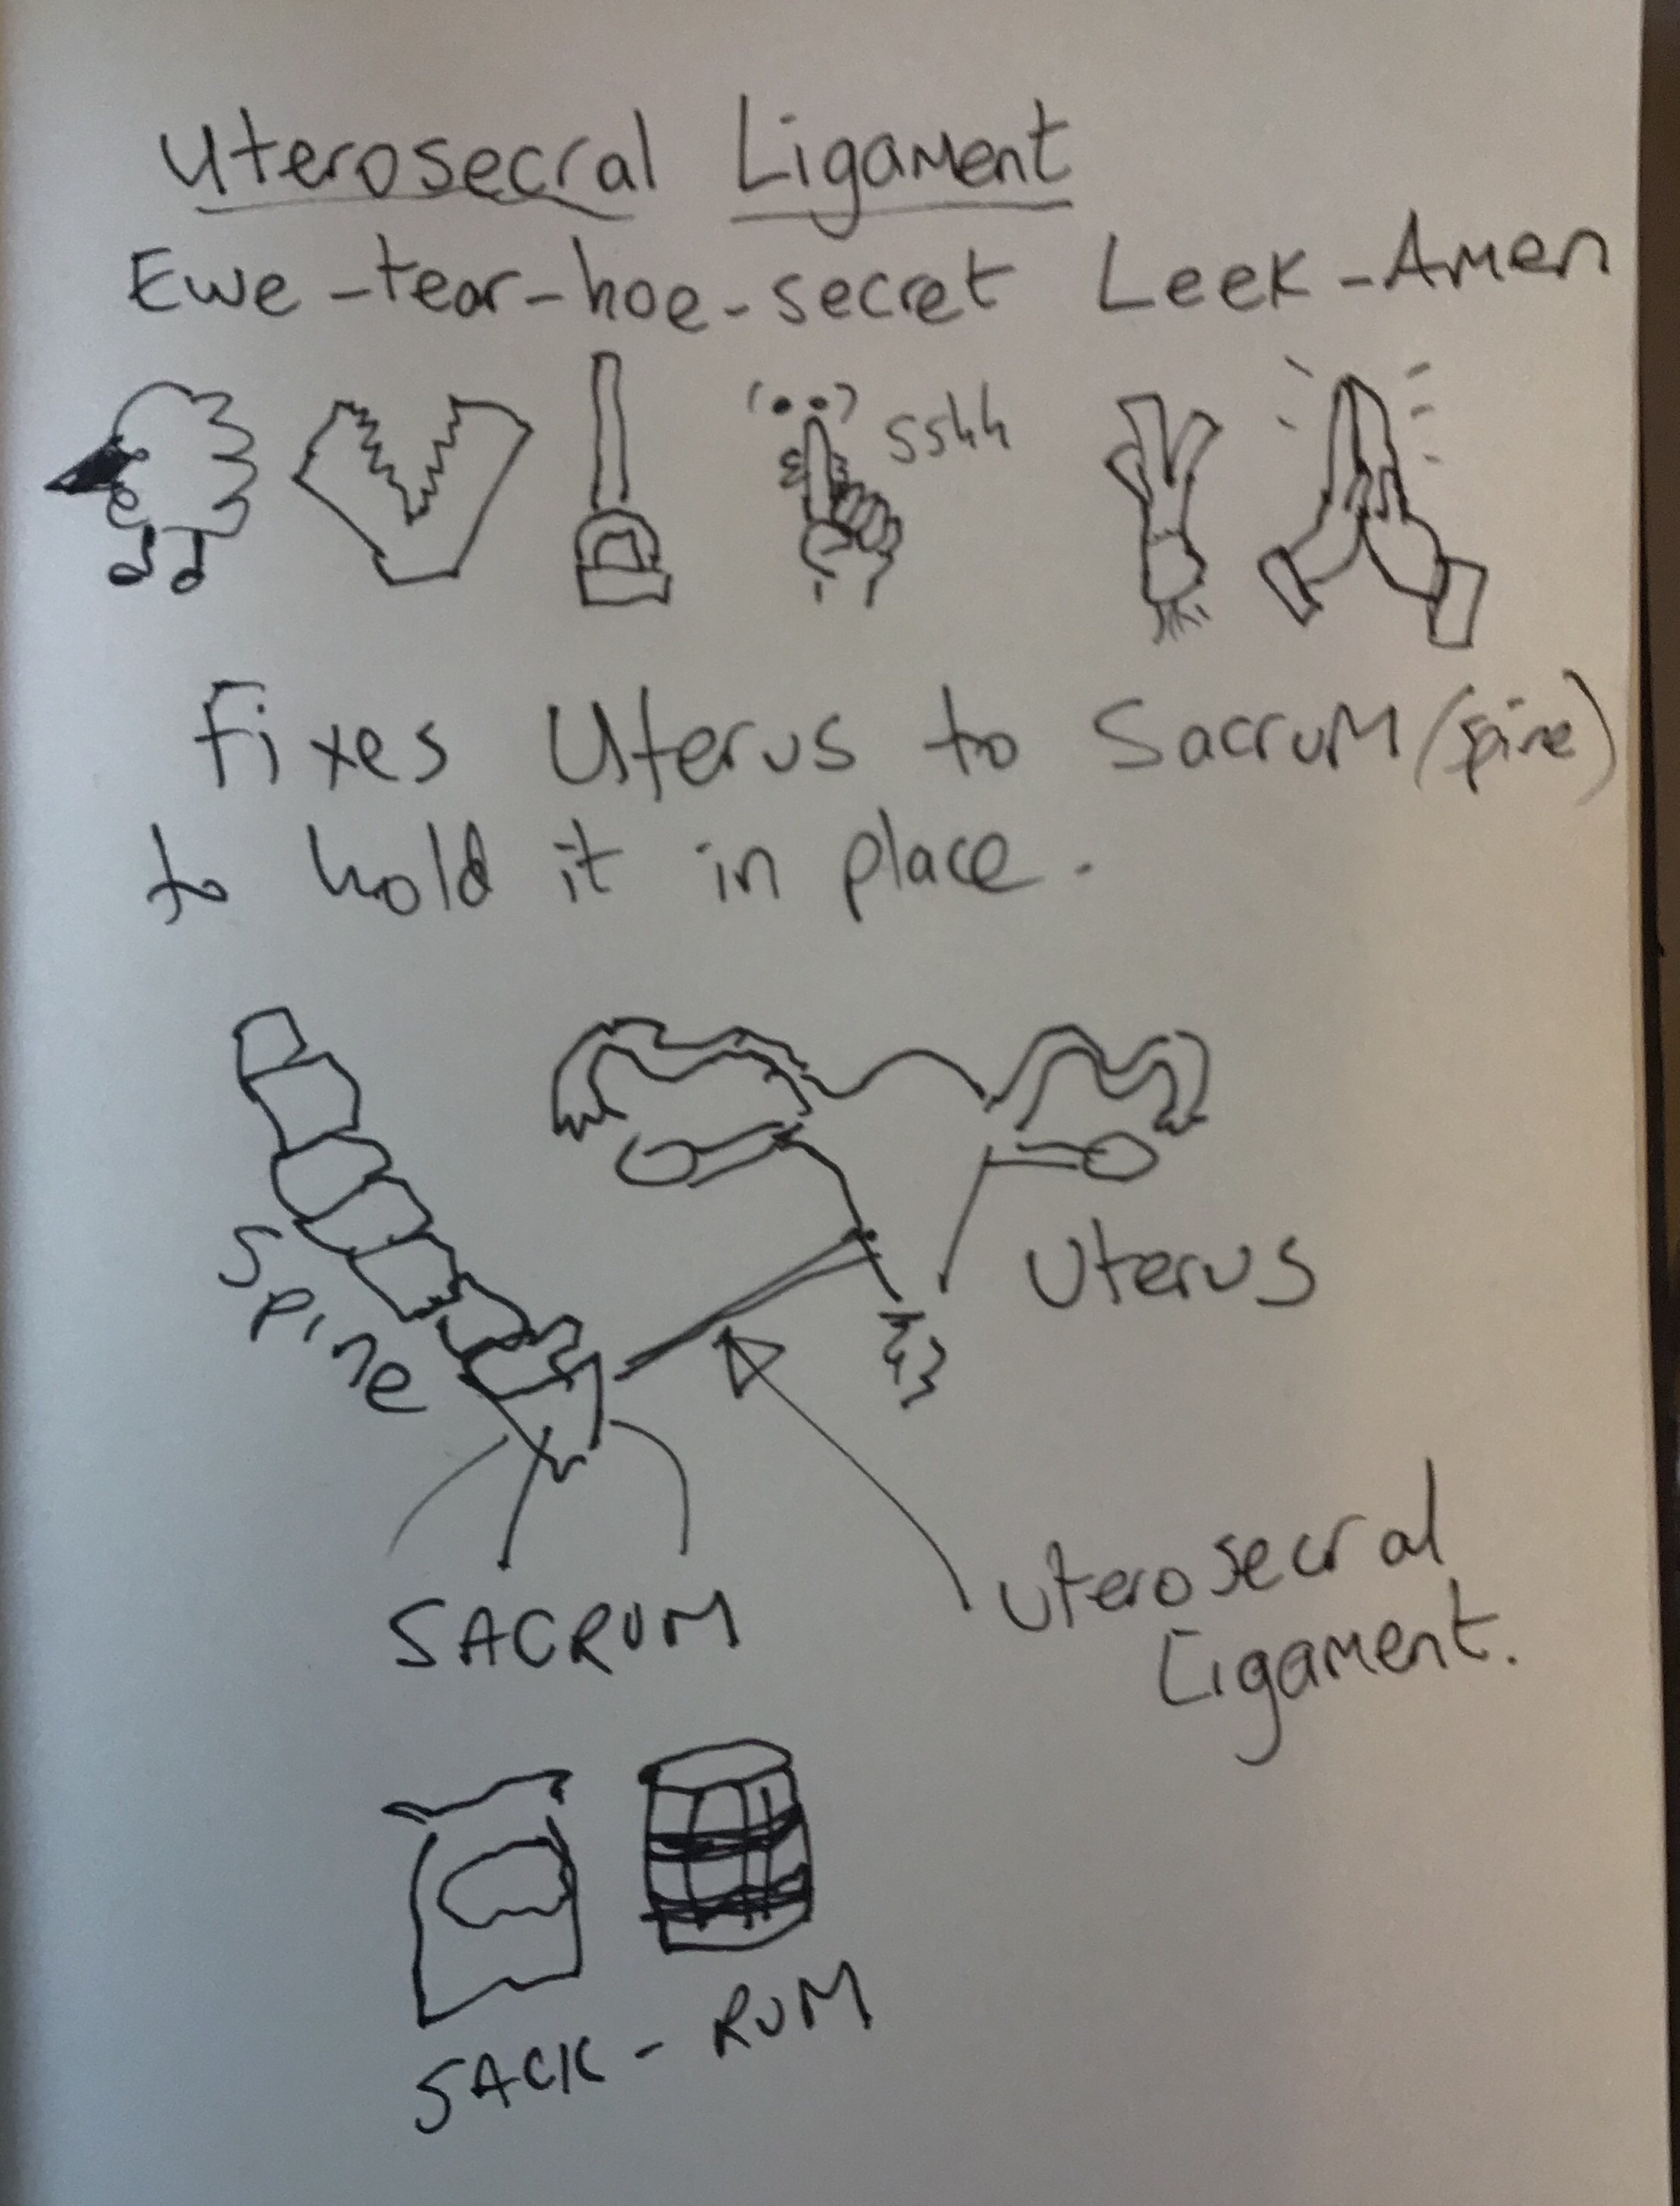 Uterosecral Ligament
Ewe-tear-hoe-secret Leek-Amen
sshh
Fixes Uterus to Sacrum (spine)
to hold it in place.
Spine
Uterus
Uterosecral
Ligament.
SACRUM
SACK-RUM